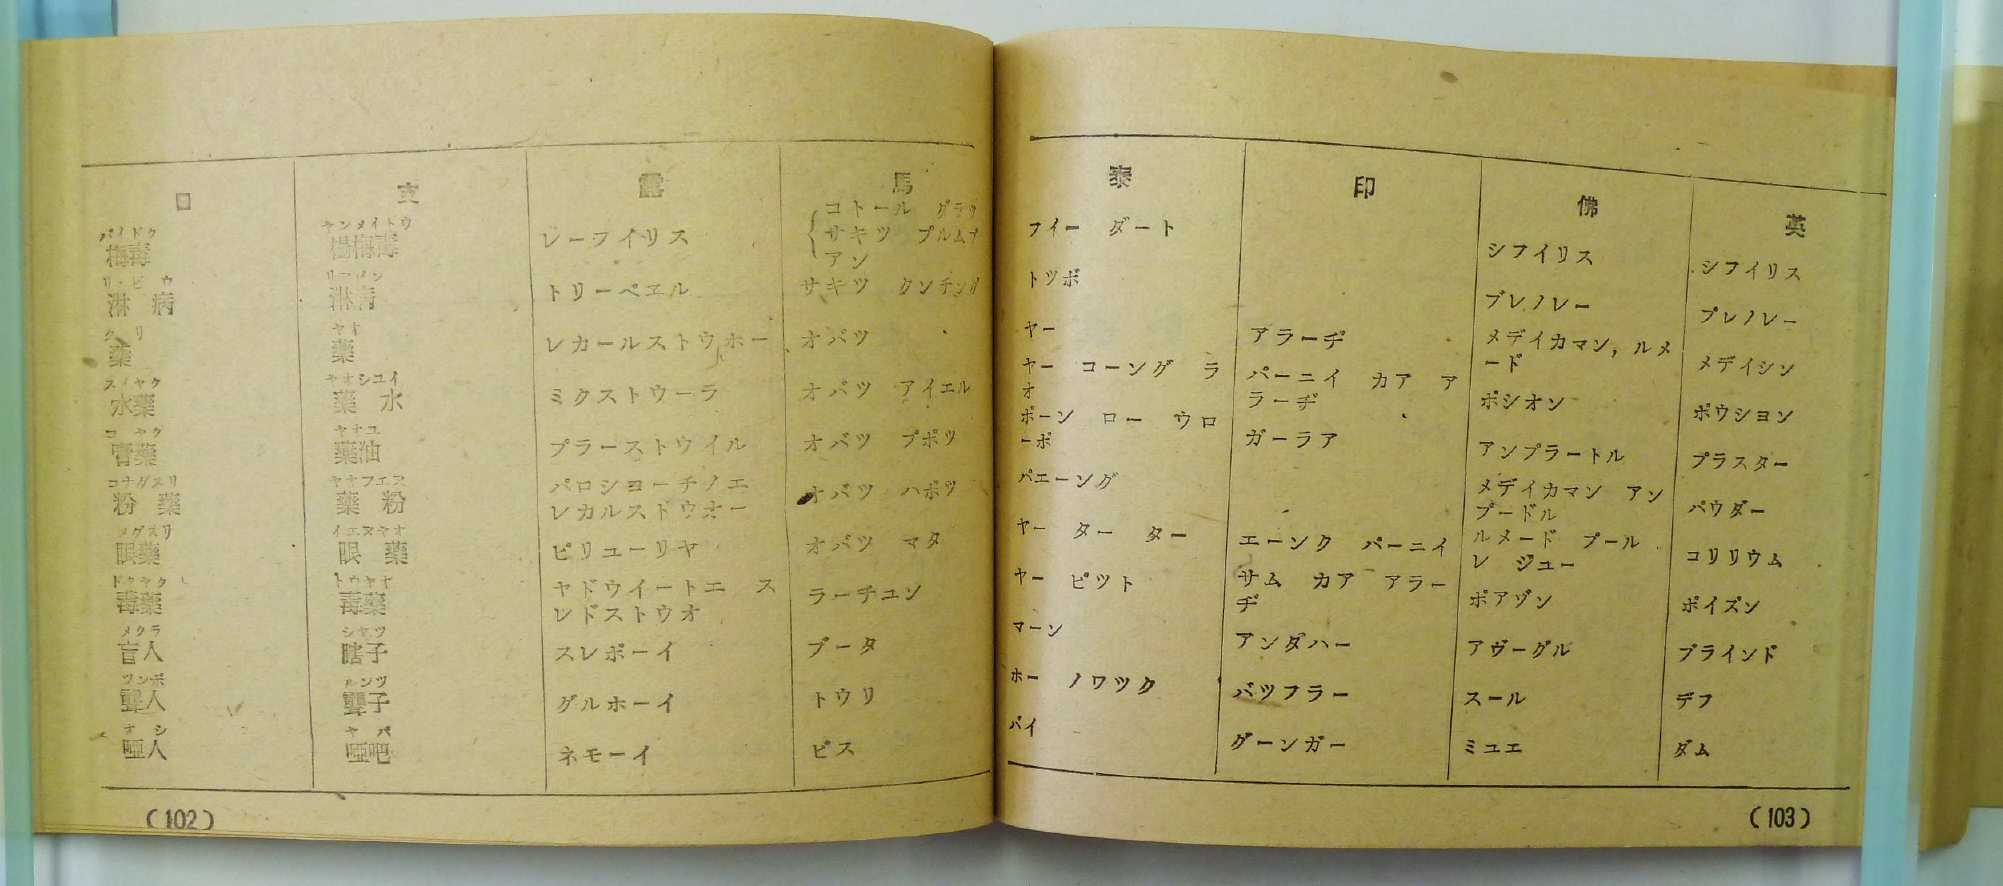 日
バイドク
梅毒
淋 病
薬
スイヤク
水薬
コ ヤク
膏薬
コナグスリ
粉 薬
メグスリ
眼薬
ドクヤク
毒薬
メクラ
盲人
ツンボ
聾人
オ シ
啞人
(102)
支
ヤンメイトウ
楊梅毒
ヤオ
薬
ヤオシユイ
薬 水
ヤオユ
薬油
ヤオフエヌ
薬 粉
イエヌヤオ
眼 薬
トウヤオ
毒薬
瞎子
聾子
ヤ パ
啞吧
露
レーフイリス
トリーペエル
レカールストウホー
ミクストウーラ
プラーストウイル
パロシヨーチノエ
レカルストウオー
ピリユーリヤ
ヤドウイートエ ス
レドストウオ
スレポーイ
グルホーイ
ネモーイ
馬
コトール
サキツ
アン
サキツ クンチング
オバツ
オバツ アイエル
オバツ プポツ
オバツ ハボツ
オバツ マタ
ラーチユン
ブータ
トウリ
ビス
泰
フイー ダート
トツボ
ヤー
ヤー コーング ラ
オ
ポーン ロー ウロ
ーボ
パエーング
ヤー ター ター
ヤー ピツト
マーン
ホー ノワツク
バイ
印
アラーヂ
パーニイ カア ア
ラーヂ
ガーラア
エーンク パーニイ
サム カア アラー
ヂ
アンダハー
バツフラー
グーンガー
佛
シフイリス
ブレノレー
メデイカマン, ルメ
ード
ポシオン
アンプラートル
メデイカマン アン
プードル
ルメード プール
レ ジユー
ポアゾン
アヴーグル
スール
ミユエ
英
シフイリス
ブレノレー
メデイシン
ポウシヨン
プラスター
パウダー
コリリウム
ポイズン
ブラインド
デフ
ダム
(103)